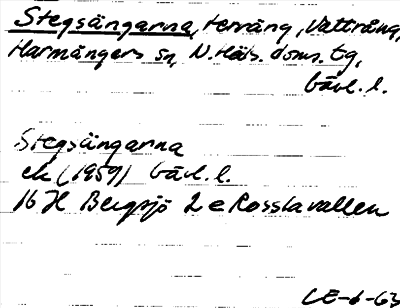 Stegsängarna, terräng, Vattrång,
Harmångers sn, N. Häls. doms. tg,
Gävl. l.
Stegsängarna
ek (1959) Gävl. l.
16 H Bergsjö 2 e Rosslavallen
LE-6-63